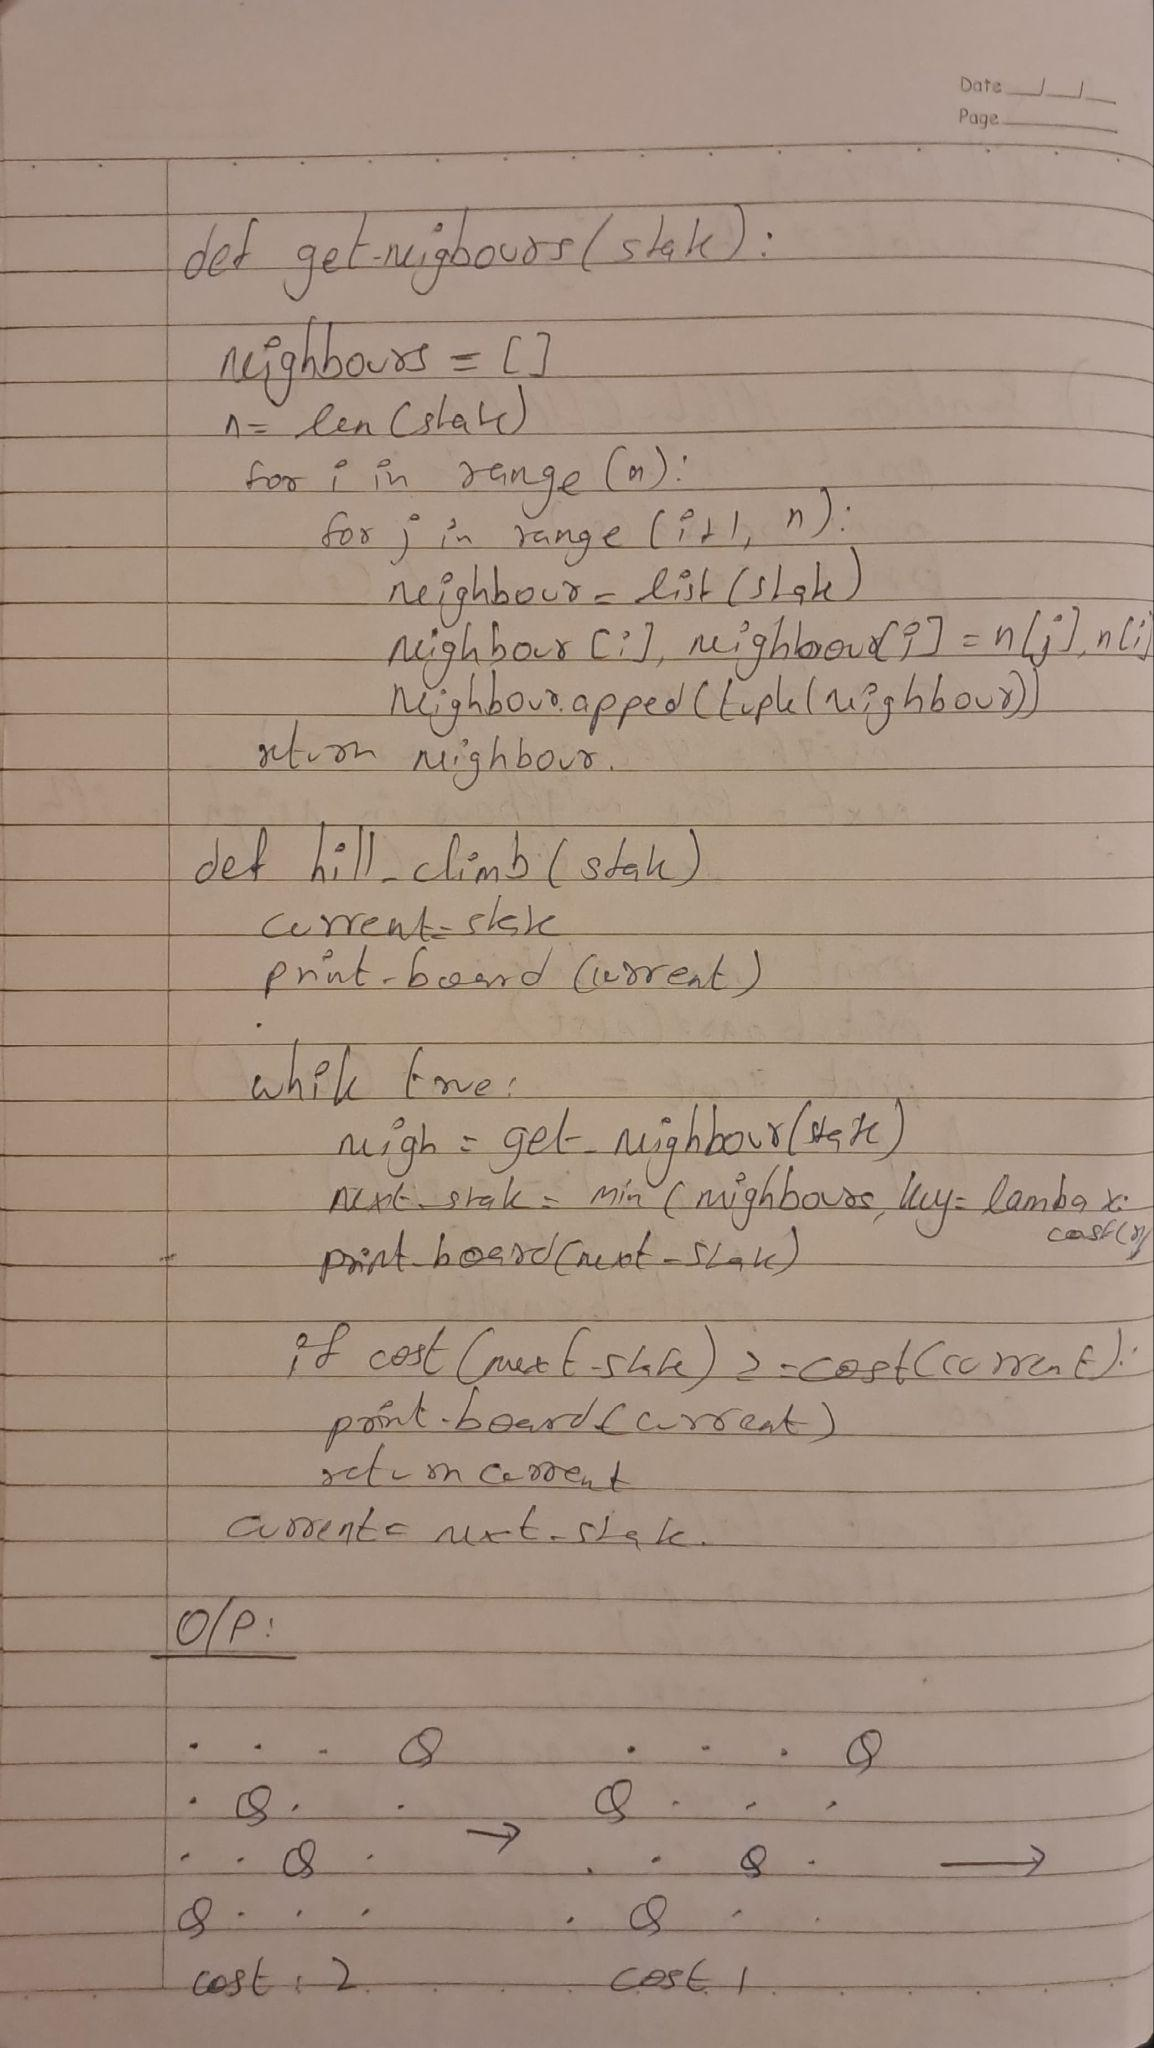 Date
Page
def get-neigbours(state):
neighbours = []
n= len (state)
for i in range (n):
for j in range (i+1, n):
neighbour = list (state)
neighbour [i], neighbour[j] = n[j], n[i]
neighbour.apped (tuple(neighbour))
return neighbour.
def hill_climb (state)
current = state
print-board (current)
while true:
neigh = get-neighbour(state)
next-state = min (neighbours, key= lamba x:
cost(x)
print-board(next-state)
if cost (next-state) >= cost (current):
print-board (current)
return current
current = next-state.
O/P:
. . . Q . . . Q
. Q . . Q . . .
→
. . Q . . . Q . →
Q . . . . Q . .
cost : 2 cost 1